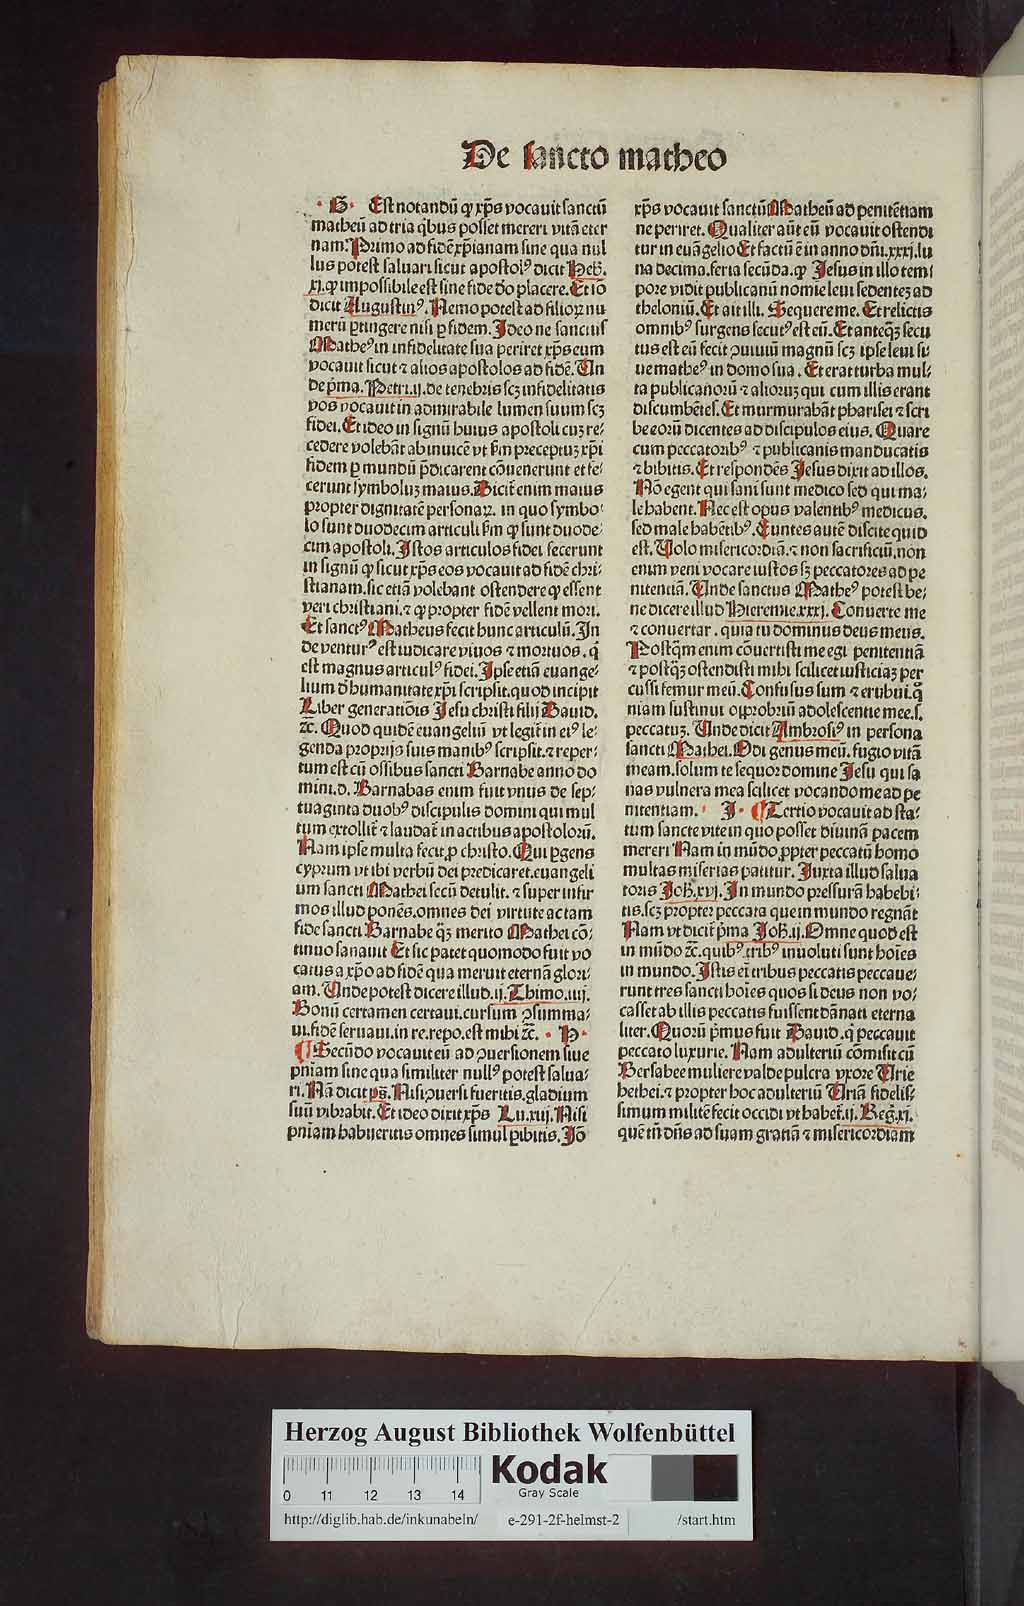 De sancto matheo
G. Est notandū ꝙ xp̄s vocauit sanctū
matheū ad tria q̇bus posset mereri vitā eter
nam. Primo ad fidē xp̄ianam sine qua nul
lus potest saluari sicut apostolꝰ dicit Heb̄.
xi. ꝙ impossibile est sine fide deo placere. Et iō
dicit Augustinꝰ. Nemo potest ad filioꝝ nu
merū ꝑtingere nisi ꝑ fidem. Ideo ne sanctus
Matheꝰ in infidelitate sua periret xp̄s eum
vocauit sicut ⁊ alios apostolos ad fidē. Un
de p̄ma. Petri.ij. de tenebris scꝫ infidelitatis
vos vocauit in admirabile lumen suum scꝫ
fidei. Et ideo in signū huius apostoli cuꝫ re-
cedere volebāt ab inuicē vt ẜm preceptuꝫ xp̄i
fidem ꝑ mundū p̄dicarent cōuenerunt et fe-
cerunt symboluꝫ maius. Dicit̄ enim maius
propter dignitatē personaꝝ. in quo symbo-
lo sunt duodecim articuli ẜm ꝙ sunt duode-
cim apostoli. Istos articulos fidei fecerunt
in signū ꝙ sicut xp̄s eos vocauit ad fidē chri-
stianam. sic etiā volebant ostendere ꝙ essent
veri christiani. ⁊ ꝙ propter fidē vellent mori.
Et sanctꝰ Matheus fecit hunc articulū. In
de venturꝰ est iudicare viuos ⁊ mortuos. q̇
est magnus articulꝰ fidei. Ipse etiā euange-
lium d̓ humanitate xp̄i scripsit. quod incipit
Liber generatiōis Jesu christi filij Dauid.
⁊c̄. Quod quidē euangeliū vt legit̄ in eiꝰ le-
genda proprijs suis manibꝰ scripsit. ⁊ reper-
tum est cū ossibus sancti Barnabe anno do
mini.d. Barnabas enim fuit vnus de sep-
tuaginta duobꝰ discipulis domini qui mul
tum extollit̄ ⁊ laudat̄ in actibus apostolorū.
Nam ipse multa fecit ꝓ christo. Qui ꝑgens
cyprum vt ibi verbū dei predicaret. euangeli
um sancti Mathei secū detulit. ⁊ super infir
mos illud ponēs. omnes dei virtute ac tam
fide sancti Barnabe qꝫ merito Mathei cō-
tinuo sanauit Et sic patet quomodo fuit vo
catus a xp̄o ad fidē qua meruit eternā glori-
am. Unde potest dicere illud. ij. Thimo.iiij.
Bonū certamen certaui. cursum ꝯsumma-
ui. fidē seruaui. in re. repo. est mihi ⁊c̄. H
Secūdo vocauit eū ad ꝯuersionem siue
pn̄iam sine qua similiter nullꝰ potest salua-
ri. Nā dicit ps̄. Nisi ꝯuersi fueritis. gladium
suū vibrabit. Et ideo dixit xp̄s Lu.xiij. Nisi
pn̄iam habueritis omnes simul ꝑibitis. Iō
xp̄s vocauit sanctū Matheū ad penitētiam
ne periret. Qualiter aūt eū vocauit ostendi
tur in euāgelio Et factū ē in anno dn̄i.xxxj. lu
na decima. feria secūda. ꝙ Jesus in illo tem-
pore vidit publicanū nomīe leui sedenteꝫ ad
theloniū. Et ait illi. Sequere me. Et relictis
omnibꝰ surgens secutꝰ est eū. Et anteqꝫ secu
tus est eū fecit ꝯuiuiū magnū scꝫ ipse leui si
ue matheꝰ in domo sua. Et erat turba mul-
ta publicanorū ⁊ alioruꝫ qui cum illis erant
discumbētes. Et murmurabāt pharisei ⁊ scri
be eorū dicentes ad discipulos eius. Quare
cum peccatoribꝰ ⁊ publicanis manducatis
⁊ bibitis. Et respondēs Jesus dixit ad illos.
Nō egent qui sani sunt medico sed qui ma-
le habent. Nec est opus valentibꝰ medicus.
sed male habētibꝰ. Euntes autē discite quid
est. Uolo misericordiā. ⁊ non sacrificiū. non
enim veni vocare iustos sꝫ peccatores ad pe
nitentiā. Unde sanctus Matheꝰ potest be-
ne dicere illud Hieremie.xxxj. Conuerte me
⁊ conuertar. quia tu dominus deus meus.
Postq̄m enim conuertisti me egi penitentiā
⁊ postqꝫ ostendisti mihi scilicet iusticiaꝫ per
cussi femur meū. Confusus sum ⁊ erubui. qm̄
niam sustinui opprobriū adolescentie mee. s.
peccatuꝫ. Unde dicit Ambrosiꝰ in persona
sancti Mathei. Odi genus meū. fugio vitā
meam. solum te sequor domine Jesu qui sa
nas vulnera mea scilicet vocando me ad pe
nitentiam. I. Tertio vocauit ad sta-
tum sancte vite in quo posset diuinā pacem
mereri Nam in mūdo ꝓpter peccatū homo
multas miserias patitur. Juxta illud salua
toris Joh̄.xvj. In mundo pressurā habebi-
tis. scꝫ propter peccata que in mundo regnāt
Nam vt dicit p̄ma Joh̄.ij. Omne quod est
in mūdo ⁊c̄. quibꝰ tribꝰ inuoluti sunt hoīes
in mundo. Istis eī tribus peccatis peccaue-
runt tres sancti hoīes quos si deus non vo-
casset ab illis peccatis fuissent dānati eterna
liter. Quorū p̄mus fuit Dauid. q̇ peccauit
peccato luxurie. Nam adulteriū cōmisit cū
Bersabee muliere valde pulcra vxore Urie
hethei. ⁊ propter hoc adulteriū Uriā fidelis-
simum militē fecit occidi vt habet̄.ij. Reg.xj.
quē tn̄ dn̄s ad suam gratiā ⁊ misericordiam
Herzog August Bibliothek Wolfenbüttel
Kodak
Gray Scale
0 11 12 13 14
http://diglib.hab.de/inkunabeln/ e-291-2f-helmst-2 /start.htm